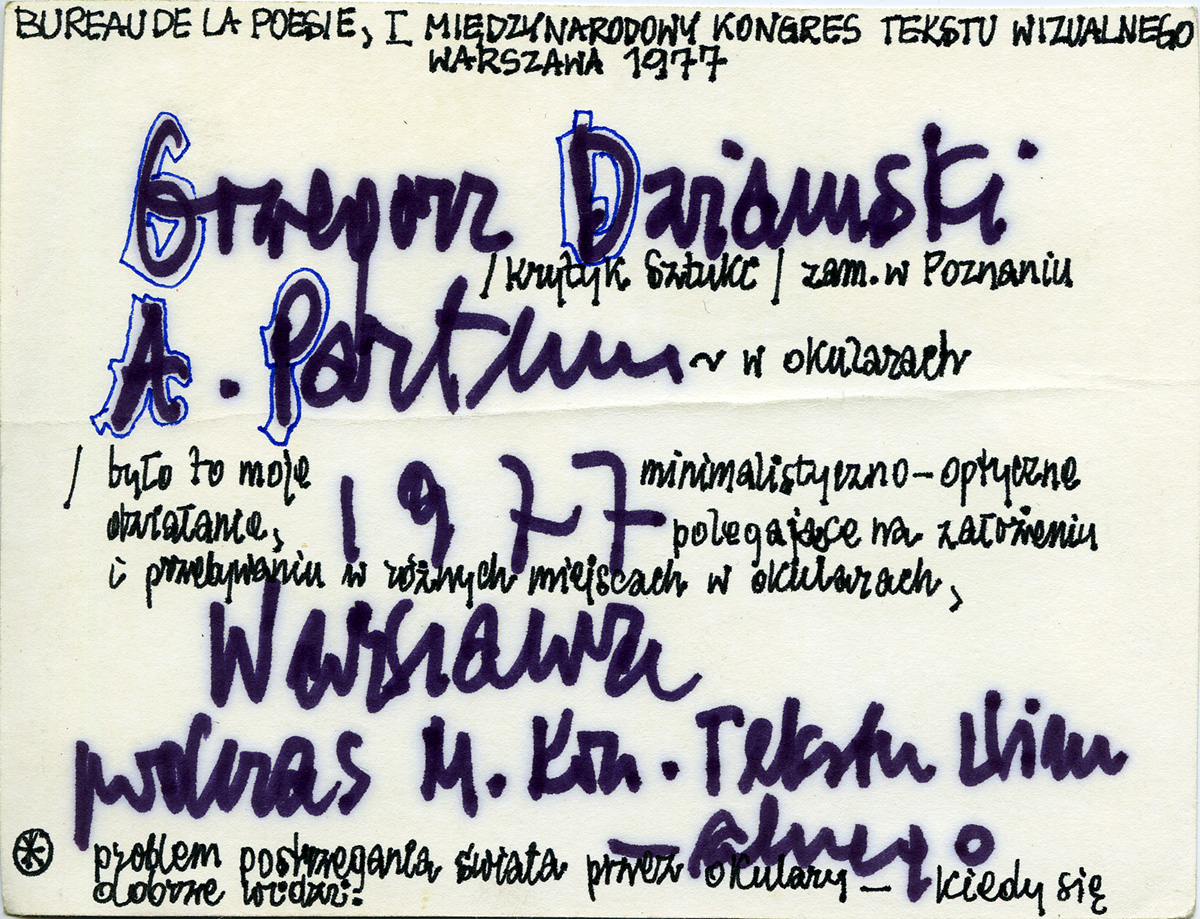 BUREAU DE LA POESIE, I MIĘDZYNARODOWY KONGRES TEKSTU WIZUALNEGO
WARSZAWA 1977
Grzegorz Dziamski
/krytyk sztuki/ zam. w Poznaniu
A. Partum ~ w okularach
/ było to moje 1977 minimalistyczno-optyczne
działanie, polegające na założeniu
i przebywaniu w różnych miejscach w okularach,
Warszawa
podczas M. Kon. Tekstu Wizu
-alnego
⊛ problem postrzegania świata przez okulary — kiedy się
dobrze widzi.